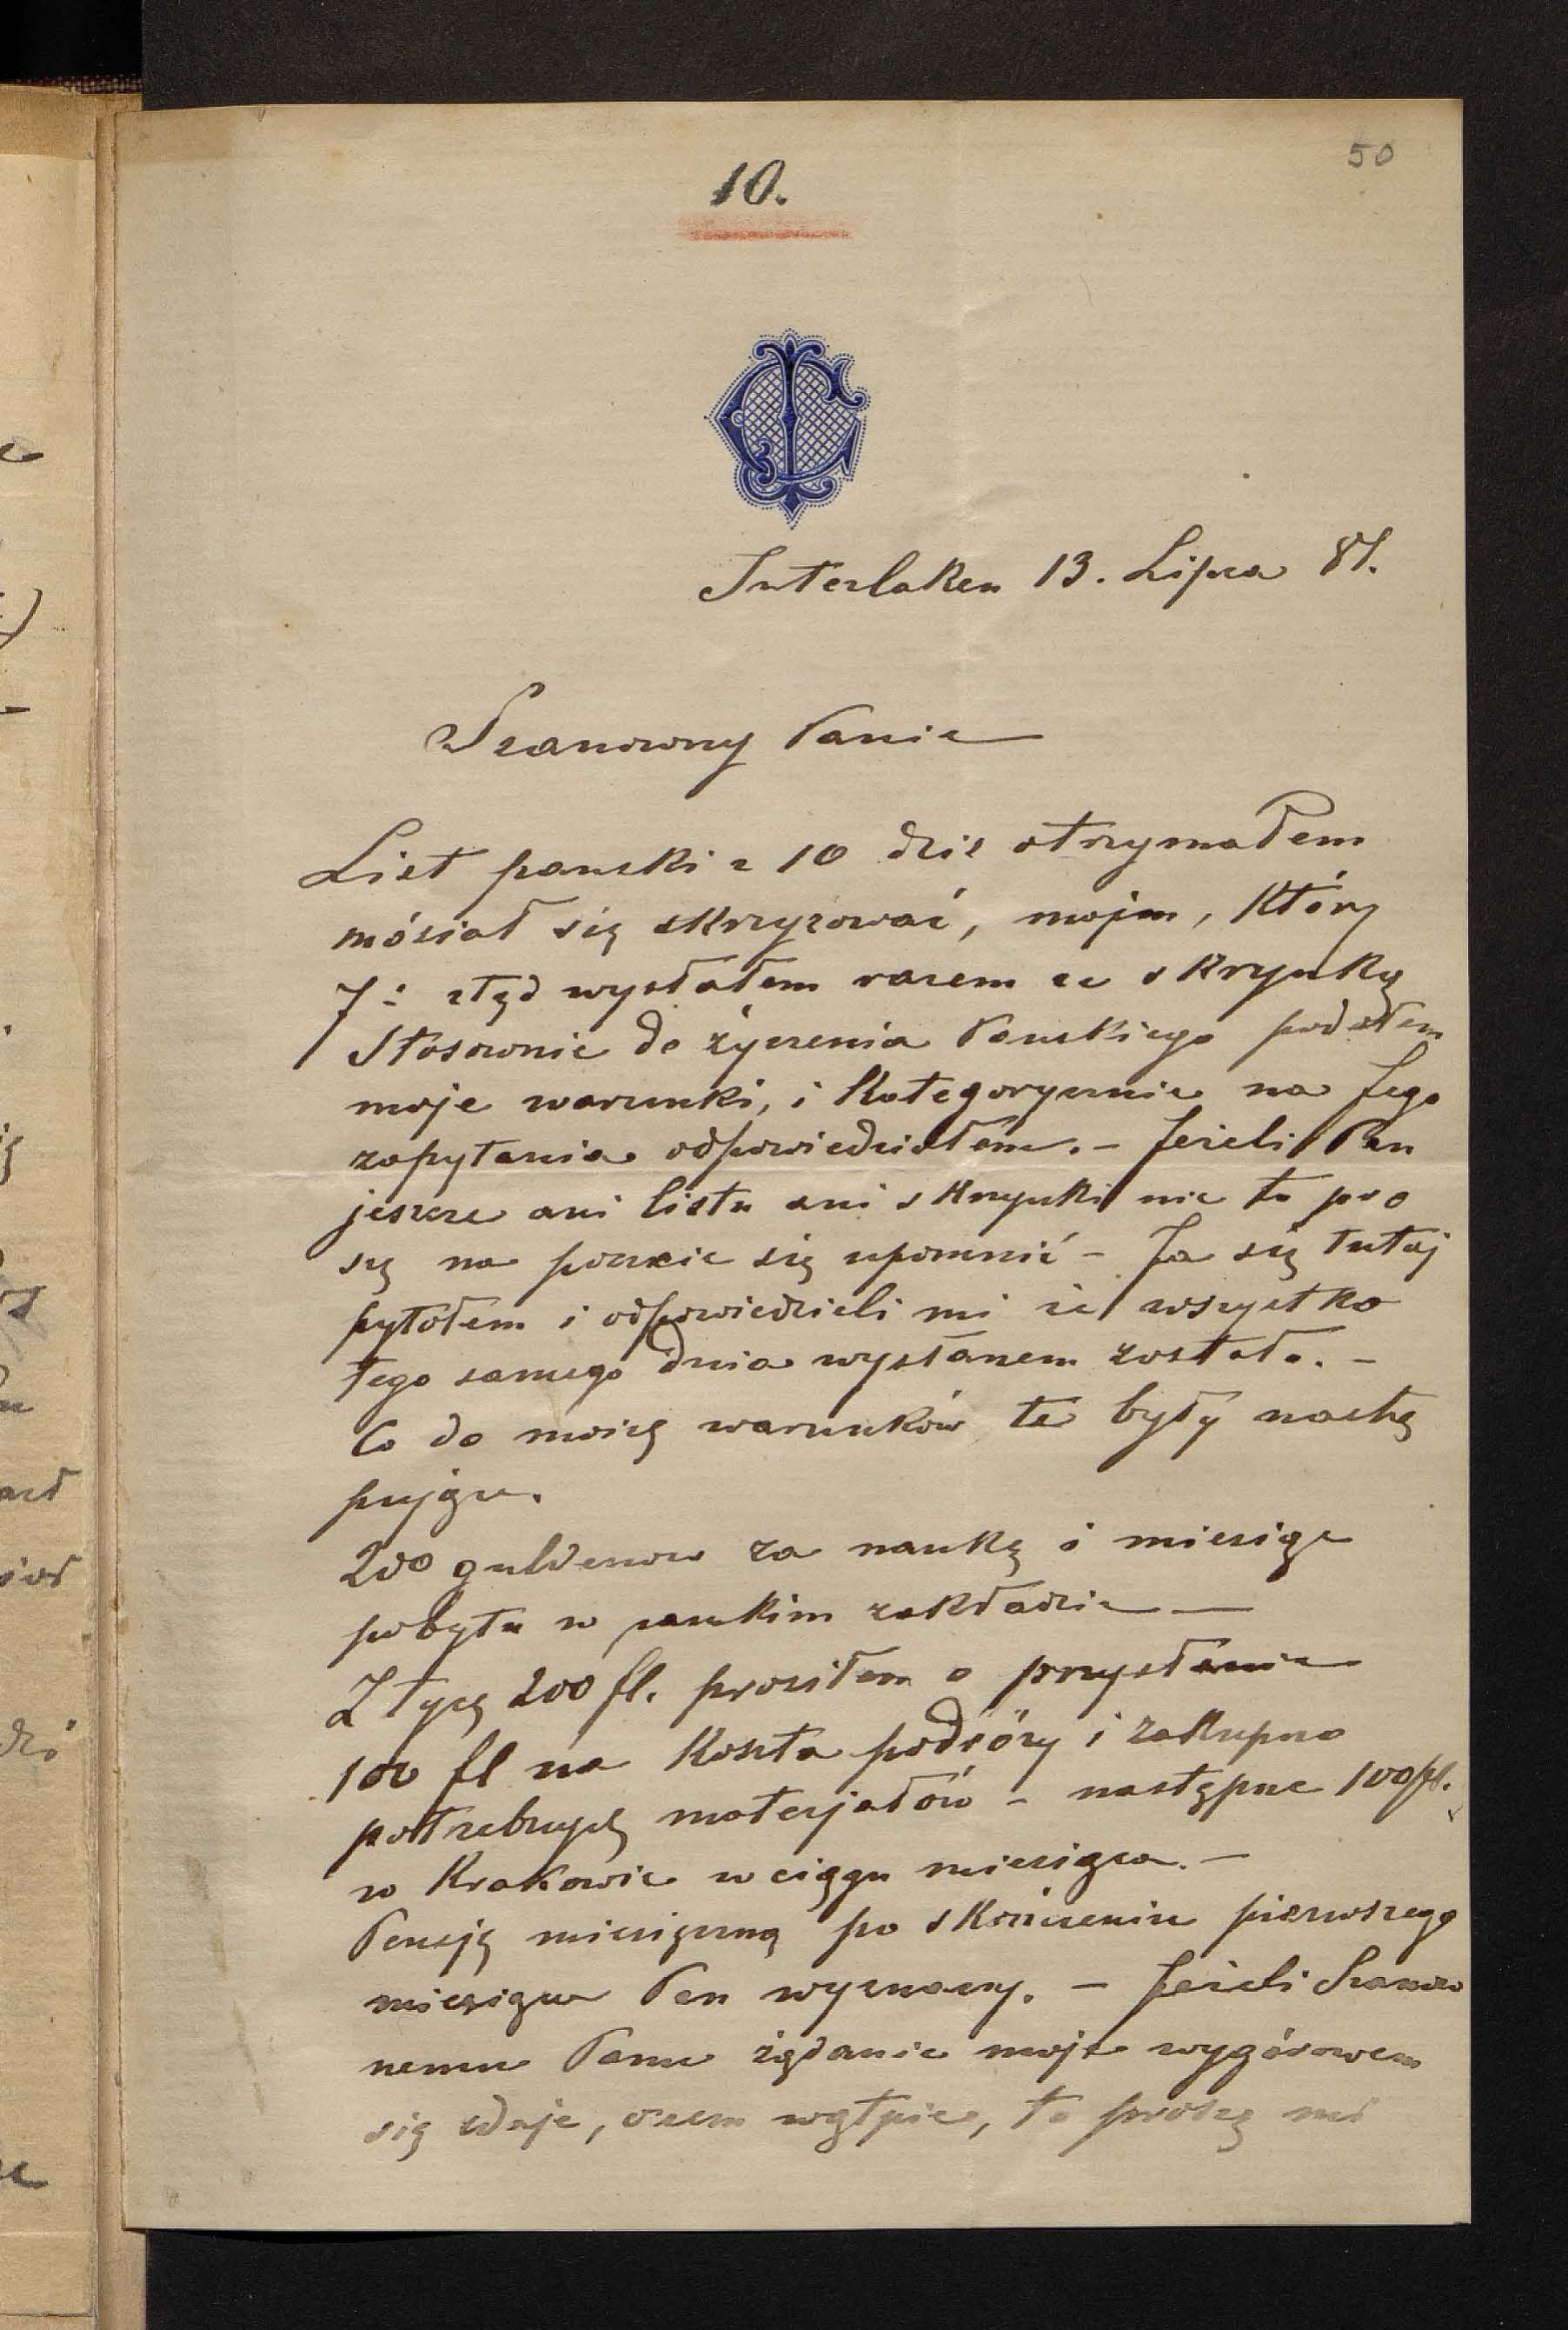 50
10.
Interlaken 13. Lipca 81.
Szanowny Panie
List panski z 10 dziś otrzymałem
mósiał się skrzyzować, mojem, który
7: ztąd wysłałem razem ze skrzynką
Stósownie do życzenia Panskiego podałem
moje warunki, i kategorycznie na Jego
zapytania odpowiedziałem. – Jeżeli Pan
jeszcze ani listu ani skrzynki nie to pro
szę na poczcie się upomnić – Ja się tutaj
pytałem i odpowiedzieli mi że wszystko
tego samego dnia wysłanem zostało. –
Co do moich warunków te były nastę
pujące.
200 guldenow za naukę i miesiąc
pobytu w panskim zakładzie —
Z tych 200 fl. prosiłem o przysłanie
100 fl na koszta podróży i zakupno
potrzebnych materjałów – następne 100 fl.
w Krakowie w ciągu miesiąca. –
Pensję miesięczną po skończeniu pierwszego
miesiąca Pan wyznaczy. – Jeżeli Szanow
nemu Panu żądanie moje wygórowem
się zdaje, o czem wątpię, to proszę mi